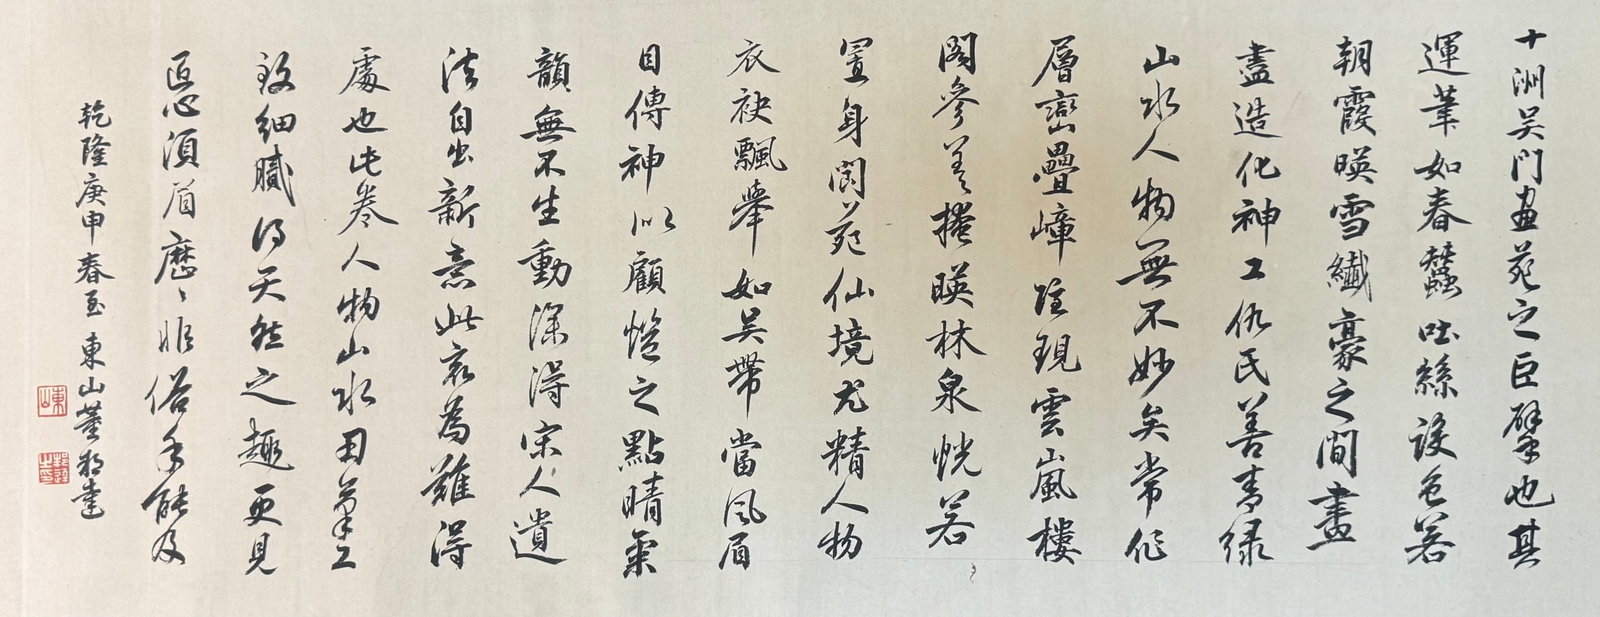 十洲吴門畫苑之巨擘也其
運筆如春蠶吐絲設色若
朝霞暎雪纖豪之間盡
盡造化神工仇氏善青绿
山水人物無不妙矣常作
層巒疊嶂隱現雲嵐樓
閣參差掩暎林泉恍若
置身閬苑仙境尤精人物
衣袂飄舉如吴帶當風眉
目傳神似顧愷之點睛氣
韻無不生動深得宋人遺
法自出新意此哀為難得
處也此卷人物山水用筆工
致細膩得天然之趣更見
匠心須眉歷々非俗手能及
乾隆庚申春至東山董邦達
東山